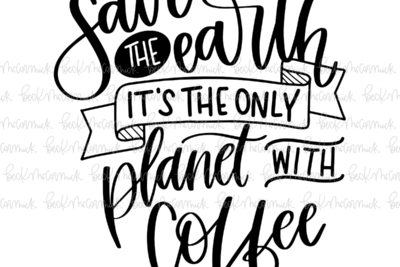 Save
THE earth
IT'S THE ONLY
planet WITH
Coffee